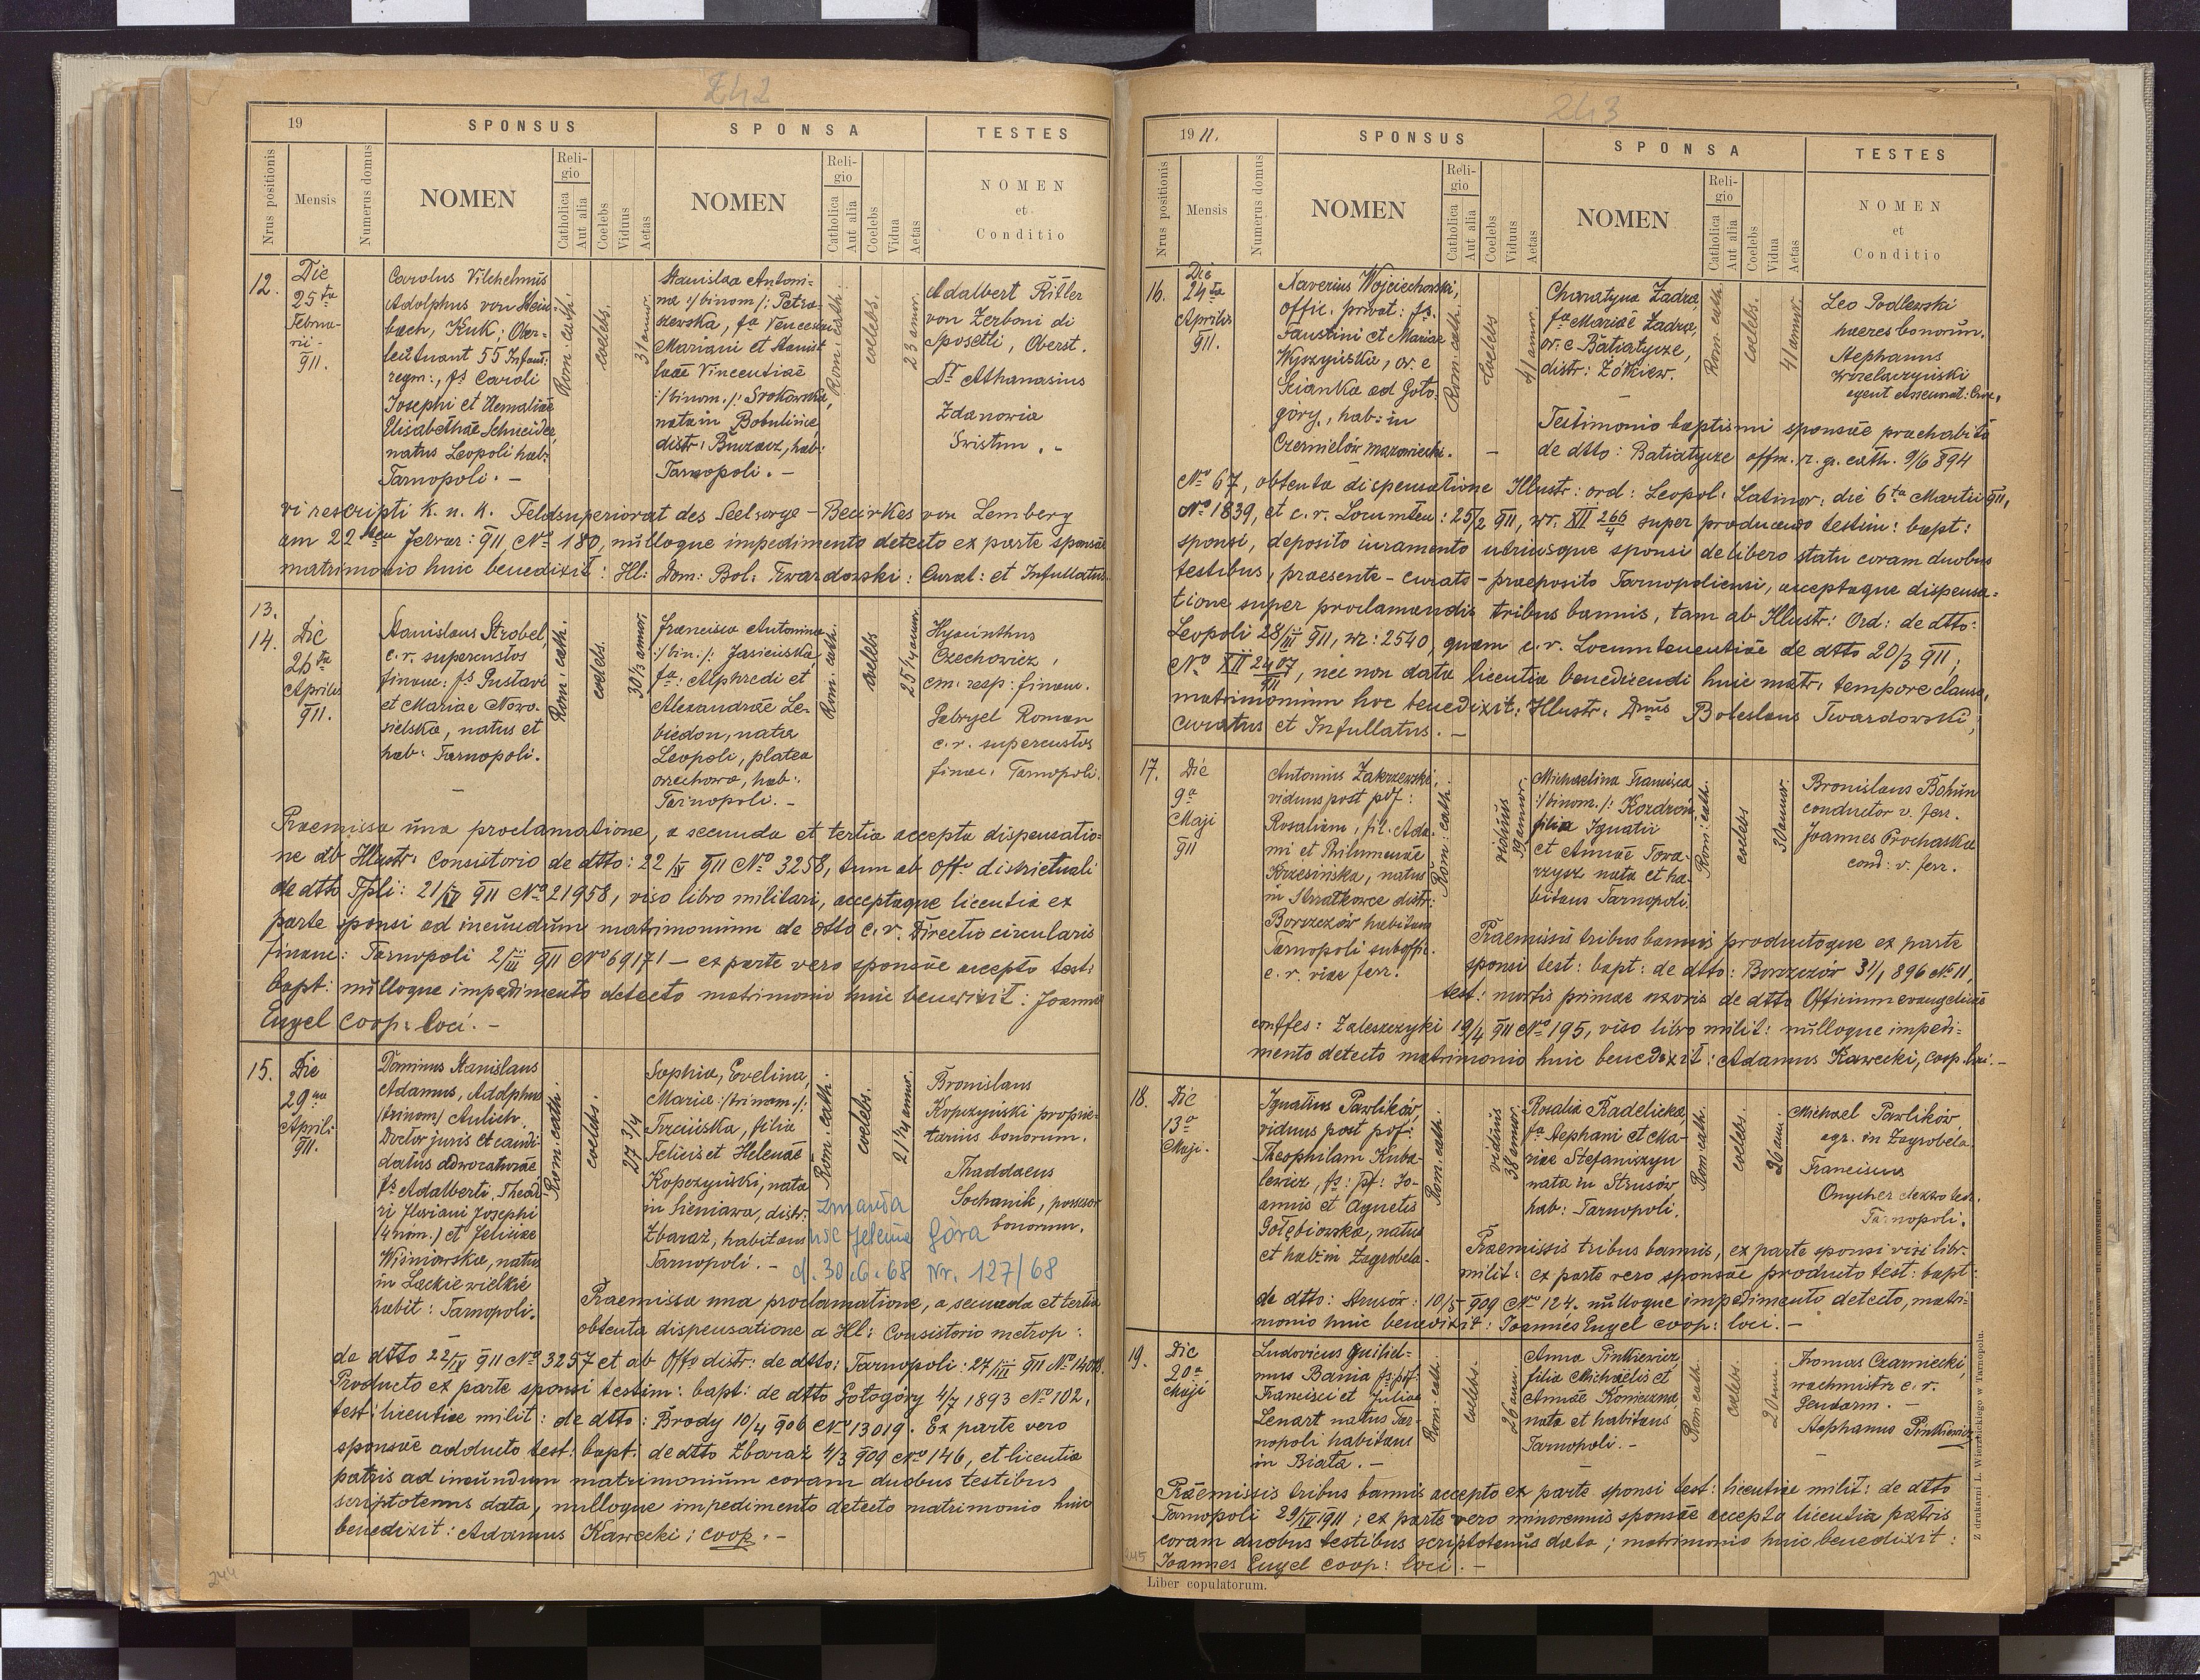 242
19
SPONSUS
SPONSA
TESTES
Nrus positionis
Mensis
Numerus domus
NOMEN
Religio
Catholica
Aut alia
Coelebs
Viduus
Aetas
NOMEN
Religio
Catholica
Aut alia
Coelebs
Vidua
Aetas
NOMEN
et
Conditio
12.
Die
25ta
Februa-
rii
911.
Carolus Vilhelmus
Adolphus von Stein-
bach, KuK; Ober-
leitnant 55 Infant:
regm:, fs Caroli
Josephi et Amaliae
Elisabethae Schneider,
natus Leopoli hab:
Tarnopoli. -
Rom: cath:
coelebs.
31 annor.
Stanislaa Antoni-
na :/binom/: Petra-
szewska, fa Venceslai
Mariani et Stanis-
laae Vincentiae
:/binom./: Srokowska,
nata in Bobulince,
distr: Buczacz, hab:
Tarnopoli. -
Rom: cath:
coelebs.
23 annor.
Adalbert Ritter
von Zerboni di
Sposetti, Oberst.
Dr Athanasius
Zdanowia
vi rescripti K. u. K. Feldsuperiorat des Seelsorge - Bezirkes von Lemberg
am 22 ten Februar: 911, No 180, nulloque impedimento detecto ex parte sponsae
matrimonio huic benedixit: Ill: Dom: Bol: Twardowski: Curat: et Infullatus.
13.
14.
Die
26ta
Aprilis
911.
Stanislaus Strobel,
c.r. supercustos
financ: fs Gustavi
et Mariae Nowo-
sielska, natus et
hab: Tarnopoli.
Rom: cath.
coelebs.
30 1/3 annor
Francisca Antonina
:/bin./: Jasieńska,
fa: Alphredi et
Alexandrae Le-
biedon, nata
Leopoli, platea
orzechowa, hab:
Tarnopoli. -
Rom: cath.
coelebs
25 1/4 annor.
Hyacinthus
Czechowicz,
em. resp: financ.
Gabryel Roman
c.r. supercustos
financ: Tarnopoli.
Praemissa una proclamatione, a secunda et tertia accepta dispensatio-
ne ab Illustr: Consistorio de dtto: 22/IV 911 No 3258, tum ab Offo districtuali
de dtto Tpli: 21/IV 911 No 21958, viso libro militari, acceptaque licentia ex
parte sponsi ad ineundum matrimonium de dtto c.r. Directio circularis
financ: Tarnopoli 2/III 911 No 6917/1 - ex parte vero sponsae accepto test:
bapt: nulloque impedimento detecto matrimonio huic benedixit: Joannes
Engel coop: loci. -
15.
Die
29na
Aprili
911.
Dominus Stanislaus
Adamus, Adolphus
(trinom) Aulich.
Doctor juris et candi-
datus advocaturae
fs Adalberti, Theod-
ri Floriani Josephi
(4 nom.) et Feliciae
Wiśniowska, natus
in Lackie wielkie
habit: Tarnopoli.
Rom: cath:
coelebs.
27 3/4
Sophia, Evelina,
Maria :/trinom./:
Trcińska, filia
Felicis et Helenae
Kopczyński, nata
in Sieniawa, distr:
Zbaraż, habitans
Tarnopoli. -
Rom: cath:
coelebs.
21 1/4 annor.
Bronislaus
Kopczyński proprie-
tarius bonorum.
Thaddaeus
Sochanik, possessor
bonorum.
zmarła
usc Jelenia Góra
d. 30.6.68 Nr. 127/68
Praemissa una proclamatione, a secunda et tertia
obtenta dispensatione a Ill: Consistorio metrop:
de dtto 22/IV 911 No 3257 et ab Offo distr: de dtto: Tarnopoli: 27/III 911 No
Producto ex parte sponsi testim: bapt: de dtto Gołogóry 4/7 1893 No 102,
test: licentiae milit: de dtto: Brody 10/4 906 No 13019. Ex parte vero
sponsae adducto test: bapt: de dtto Zbaraż 4/3 909 No 146, et licentia
patris ad ineundum matrimonium coram duobus testibus
scriptotenus data, nulloque impedimento detecto matrimonio huic
benedixit: Adamus Kawecki; coop. -
244
243
1911.
SPONSUS
SPONSA
TESTES
Nrus positionis
Mensis
Numerus domus
NOMEN
Religio
Catholica
Aut alia
Coelebs
Viduus
Aetas
NOMEN
Religio
Catholica
Aut alia
Coelebs
Vidua
Aetas
NOMEN
et
Conditio
16.
Die
24ta
Aprilis
911.
Xaverius Wojciechowski,
offic. privat: fs.
Faustini et Mariae
Wyszyńska, or. e
Scianka ad Goło-
góry, hab: in
Czernielów mazowiecki.
Rom: cath.
Coelebs
41 annor.
Charatyna Zadra,
fa Mariae Zadra,
or. e Batiatycze,
distr: Żółkiew.
Rom: cath.
coelebs.
41 annor.
Leo Podlewski
haeres bonorum.
Stephanus
agent Assecurat:
Testimonio baptismi sponsae praehabito
de dtto: Batiatycze offm. r. gr. cath. 9/6 894
No 67, obtenta dispensatione Illustr: ord: Leopol: Latinor: die 6ta Martii 911,
No 1839, et c.r. Locumten: 25/2 911, nr. XII 266/4 super producendo testim: bapt:
sponsi, deposito iuramento utriusque sponsi de libero statu coram duobus
testibus, praesente - curato - praeposito Tarnopoliensi, acceptaque dispensa-
tione super proclamandis tribus bannis, tam ab Illustr: Ord: de dtto:
Leopoli 28/III 911, nr: 2540, quam c.r. Locumtenentiae de dtto 20/3 911,
No XII 2407/911, nec non data licentia benedicendi huic matr: tempore clauso,
matrimonium hoc benedixit: Illustr: Dnus Boleslaus Twardowski,
curatus et Infullatus. -
17.
Die
9a
Maji
911
Antonius Zakrzewski,
viduus post pdf:
Rosaliam, fil. Ada-
mi et Philumenae
Krzesińska, natus
in Strzałkowce distr:
Borszczów habitans
Tarnopoli suboffic.
c.r. viae ferr.
Rom: cath.
viduus
39 annor.
Michaelina Francisca
:/binom./: Kozdroń,
filia Ignatii
et Annae Towa-
rzysz nata et ha-
bitans Tarnopoli.
Rom: cath.
coelebs.
30 annor.
Bronislaus Bohun
conductor v. ferr.
Joannes Prochaska
cond: v. ferr.
Praemissis tribus bannis productoque ex parte
sponsi test: bapt: de dtto: Borszczów 31/1 896 No 11,
test: mortis primae uxoris de dtto Officium evangelicae
conffes: Zaleszczyki 19/4 911 No 195, viso libro milit: nulloque impedi-
mento detecto matrimonio huic benedixit: Adamus Kawecki, coop. loci. -
18.
Die
13a
Maji.
Ignatius Pawlików,
viduus post pdf:
Theophilam Kuba-
lewicz, fs: pf: Jo-
annis et Agnetis
Gołębiowska, natus
et hab: in Zagrobela.
Rom: cath.
viduus
38 annor.
Rosalia Radelicka,
fa Stephani et Ma-
riae Stefaniszyn
nata in Strusów
hab: Tarnopoli.
Rom: cath.
coelebs.
26 ann.
Michael Pawlików
agr. in Zagrobela.
Franciscus
Tarnopoli.
Praemissis tribus bannis, ex parte sponsi visi libr.
milit: ex parte vero sponsae producto test: bapt:
de dtto: Strusów: 10/5 909 No 124. nulloque impedimento detecto, matri-
monio huic benedixit: Joannes Engel coop: loci. -
19.
Die
20a
Maji
Ludovicus Guiliel-
mus Bania fs: pdf:
Francisci et Juliae
Lenart natus Tar-
nopoli habitans
in Biała. -
Rom: cath.
coelebs.
26 ann.
Anna Pinkiewicz,
filia Michaëlis et
Annae Konieczna,
nata et habitans
Tarnopoli. -
Rom: cath.
coelebs.
20 ann.
Thomas Czarniecki,
wachmistrz c.r.
gendarm. -
Stephanus Pinkiewicz
Praemissis tribus bannis accepto ex parte sponsi test: licentiae milit: de dtto
Tarnopoli 29/IV 1911; ex parte vero minorennis sponsae accepta licentia patris
coram duobus testibus scriptotenus data; matrimonio huic benedixit:
Joannes Engel coop: loci. -
245
Liber copulatorum.
Z drukarni L. Wierzbickiego w Tarnopolu.